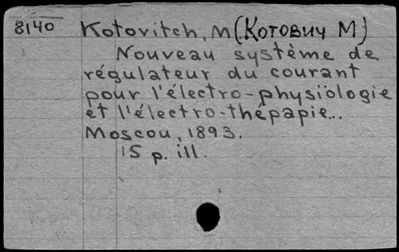 8140 Kotovitch, M (Котович М)
Nouveau système de
régulateur du courant
pour l'électro-physiologie
et l'électro-thépapie...
Moscou, 1893.
15 p. ill.